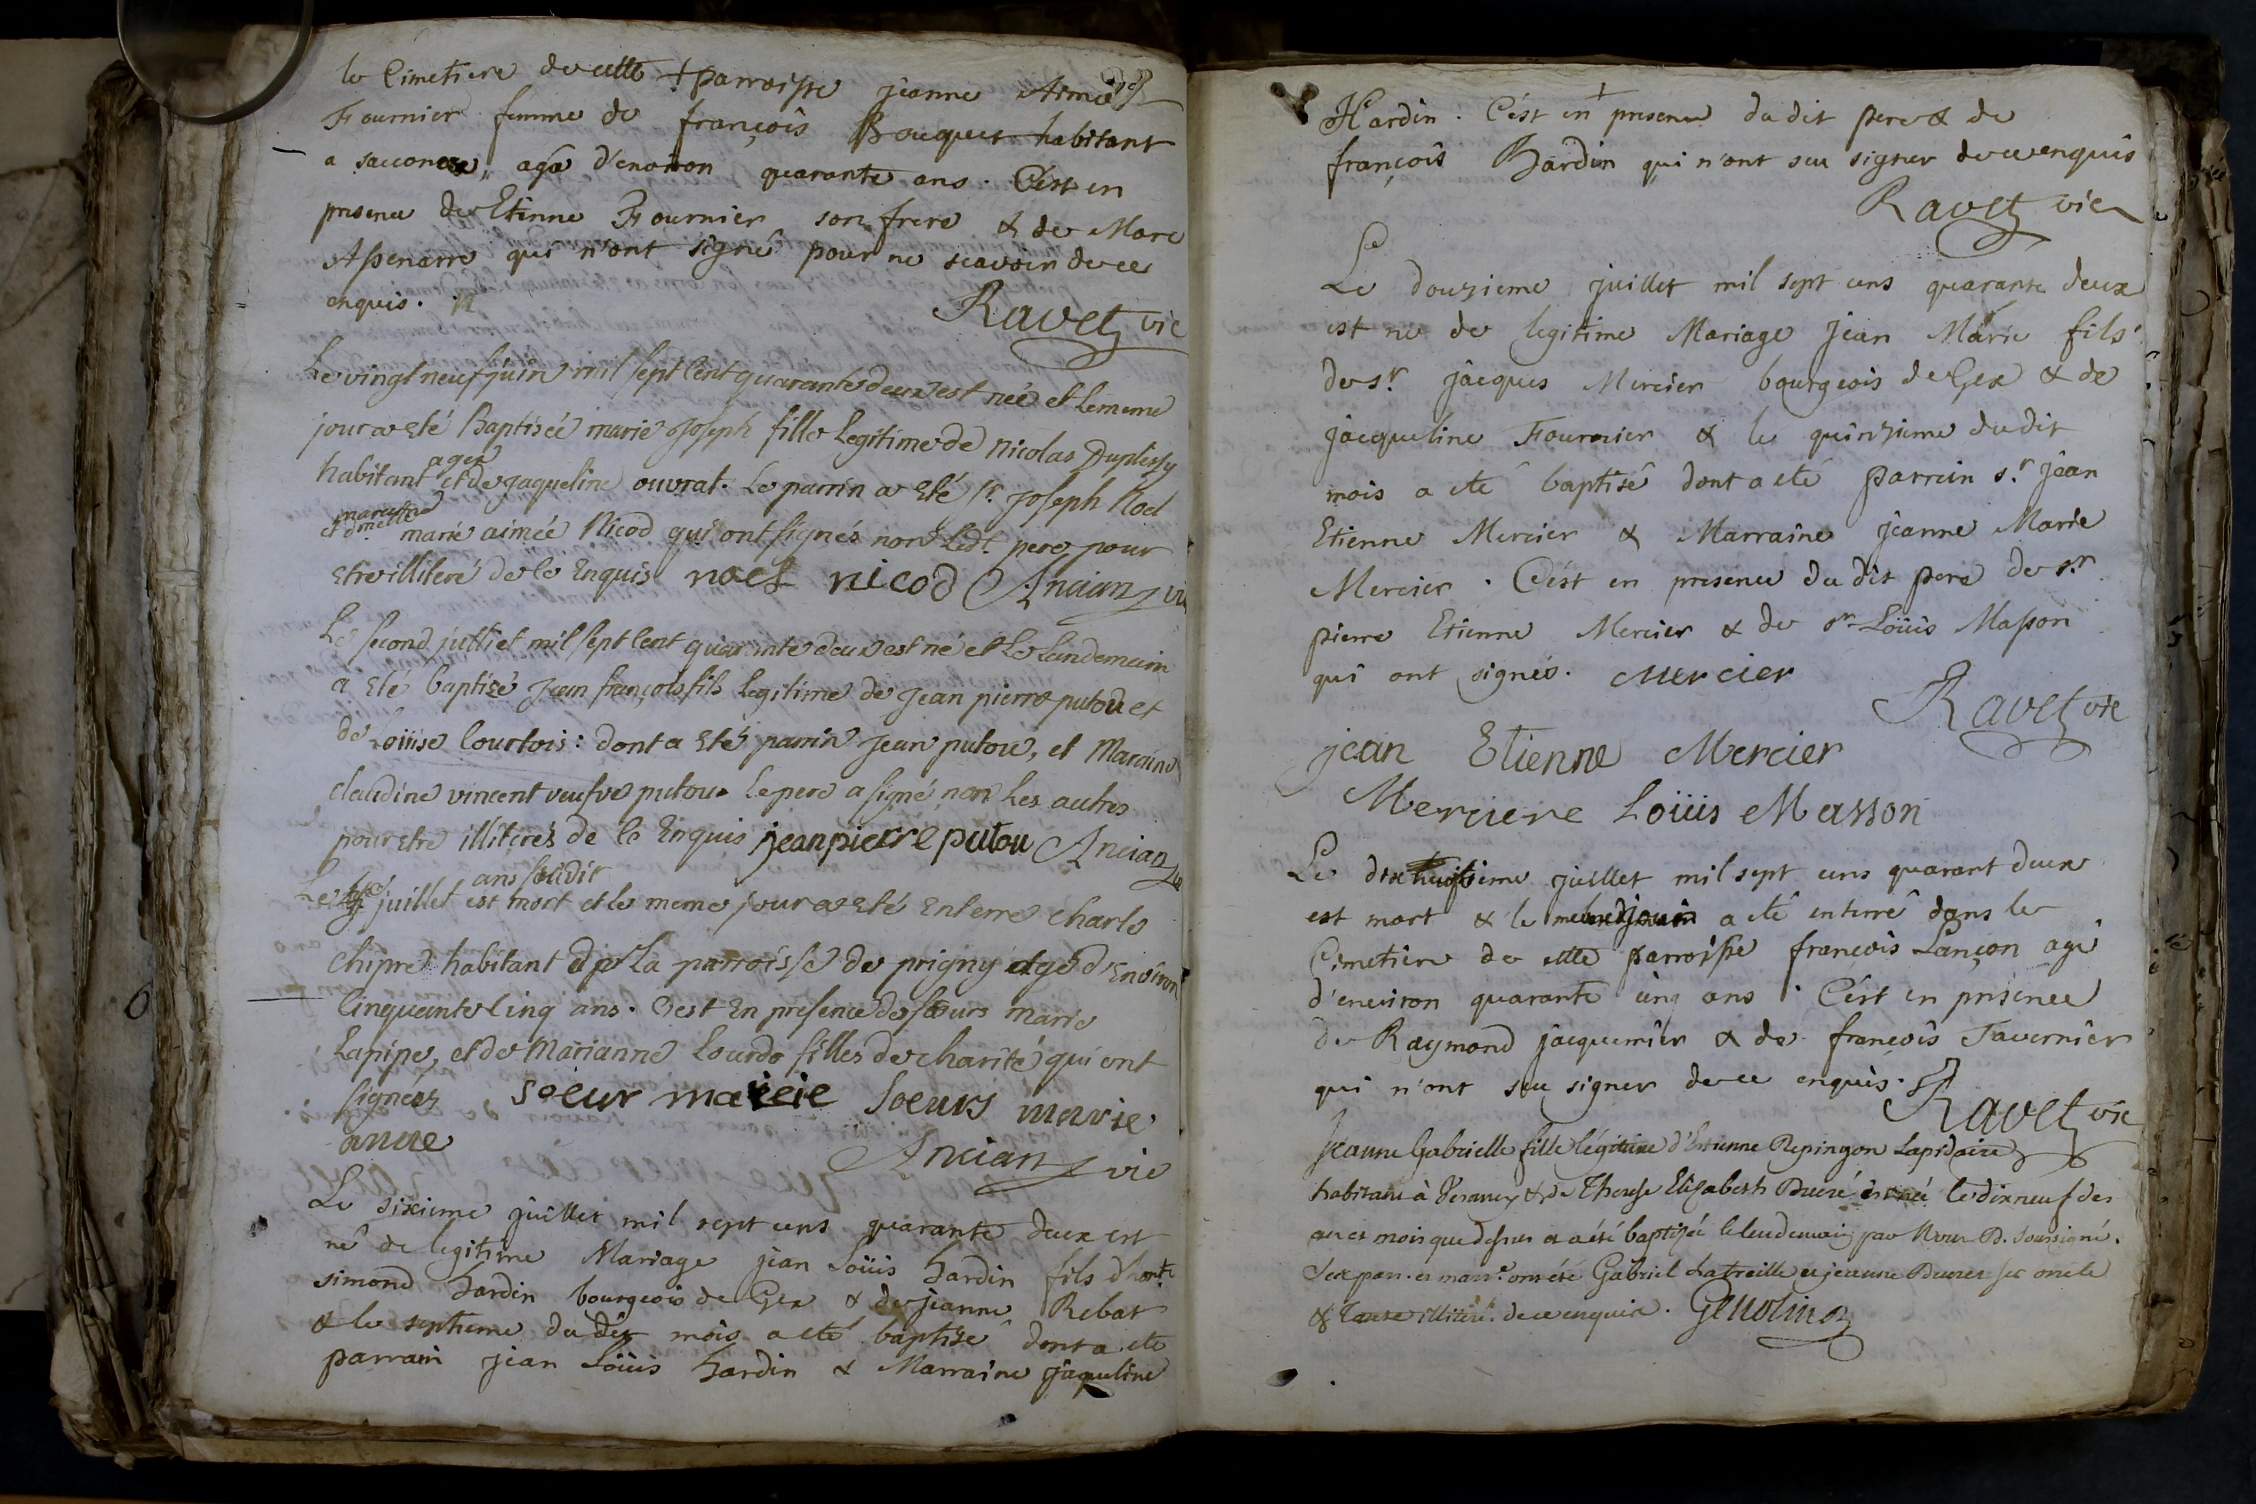 le Cimetiere de cette parroisse jeanne Aimée
Fournier femme de françois Bouquet habitant
a sacconex, agée d'environ quarante ans. C'est en
presence de Etienne Fournier son frere & de Marc
Apenarre qui n'ont signé pour ne scavoir de ce
enquis.
Ravet vic
Le vingt neuf juin mil sept cent quarante deux est née et le meme
jour a eté Baptisée marie Joseph fille legitime de nicolas Duplessy
habitant a gex et de jaqueline ouvrat. Le parrin a eté sr. joseph Noel
et maraine dmelle marie aimée Nicod qui ont signés non ledt. pere pour
etre illiteré de ce Enquis noel nicod Ancian vic
Le second julliet mil sept cent quarante deux est né et le landemain
a eté baptizé jean françois fils legitime de jean pierre putou et
de Loüise courtois: dont a eté parrin jean putou, et Maraine
claudine vincent veufve putou. le pere a signé non les autres
pour etre illiterés de ce Enquis jean pierre putou Ancian vic
Le juillet an susdit est mort et le meme jour a eté enterré charle
chipre habitant de la parroisse de prigny agé d'Environ
Cinquante cinq ans. C'est En presence de soeurs marie
Lapipe, et de Marianne Lourdo filles de charité qui ont
signéez soeur marie soeurs marie
anne
Ancian vic
Le sixieme juillet mil sept cens quarante deux est
né de legitime Mariage jean Loüis hardin fils d'hont.
simond hardin bourgeois de Gex & de jeanne Rebat
& le septieme du dit mois a eté baptisé dont a eté
parrain jean Loüis hardin & Marraine jaqueline
Hardin. C'est en presence du dit pere & de
françois Hardin qui n'ont seu signer de ce enquis
Ravet vic
Le douzieme juillet mil sept cens quarante deux
est né de legitime Mariage jean Marie fils
de sr. jacques Mercier bourgeois de Gex & de
jacqueline Fournier & le quinzieme du dit
mois a eté baptisé dont a eté parrein sr. jean
Etienne Mercier & Marraine jeanne Marie
Mercier. C'est en presence du dit pere de sr.
pierre Etienne Mercier & de sr. Loüis Masson
qui ont signés. Mercier
Ravet vic
jean Etienne Mercier
Merciere Loüis Masson
Le dix huitieme juillet mil sept cens quarant deux
est mort & le a eté enterré dans le
Cimetiere de cette parroisse françois Lançon agé
d'environ quarante cinq ans. C'est en présence
de Raymond jacquemier & de françois Tavernier
qui n'ont seu signer de ce enquis.
Ravet vic
Jeanne Gabrielle fille légitime d'Etienne Repingon Lapidaire
habitant à & de Therese Elisabeth Ducré est née le dixneuf des
an et mois que dessus et a été baptisée le lendemain par Nous P. Soussigné.
Ses par. et marr. ont été Gabriel Latreille et jeanne Ducret ses oncle
& Tante illiterés de ce enquis. Genolin